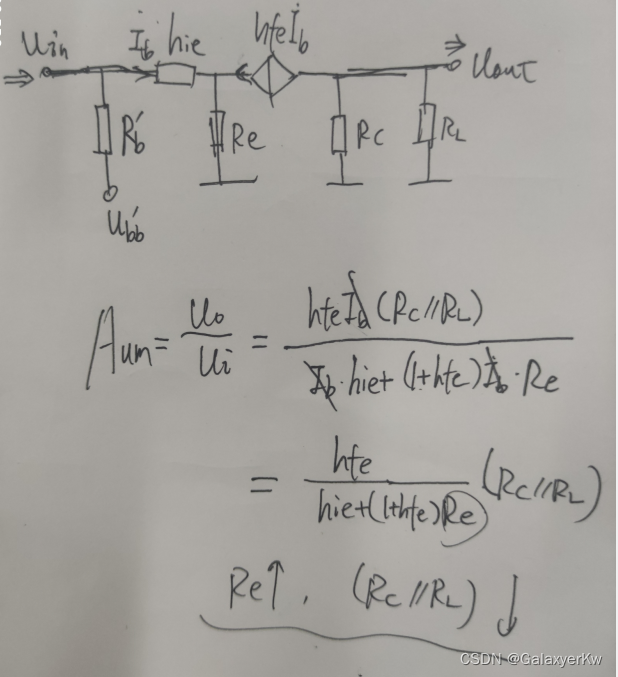 Uin İb hie hfeİb Uout
Rb' Re Rc RL
Ubb'
Aum = Uo/Ui = hfeİb(Rc//RL) / İb·hie+(1+hfe)İb·Re
= hfe / hie+(1+hfe)Re (Rc//RL)
Re↑, (Rc//RL)↓
CSDN @GalaxyerKw